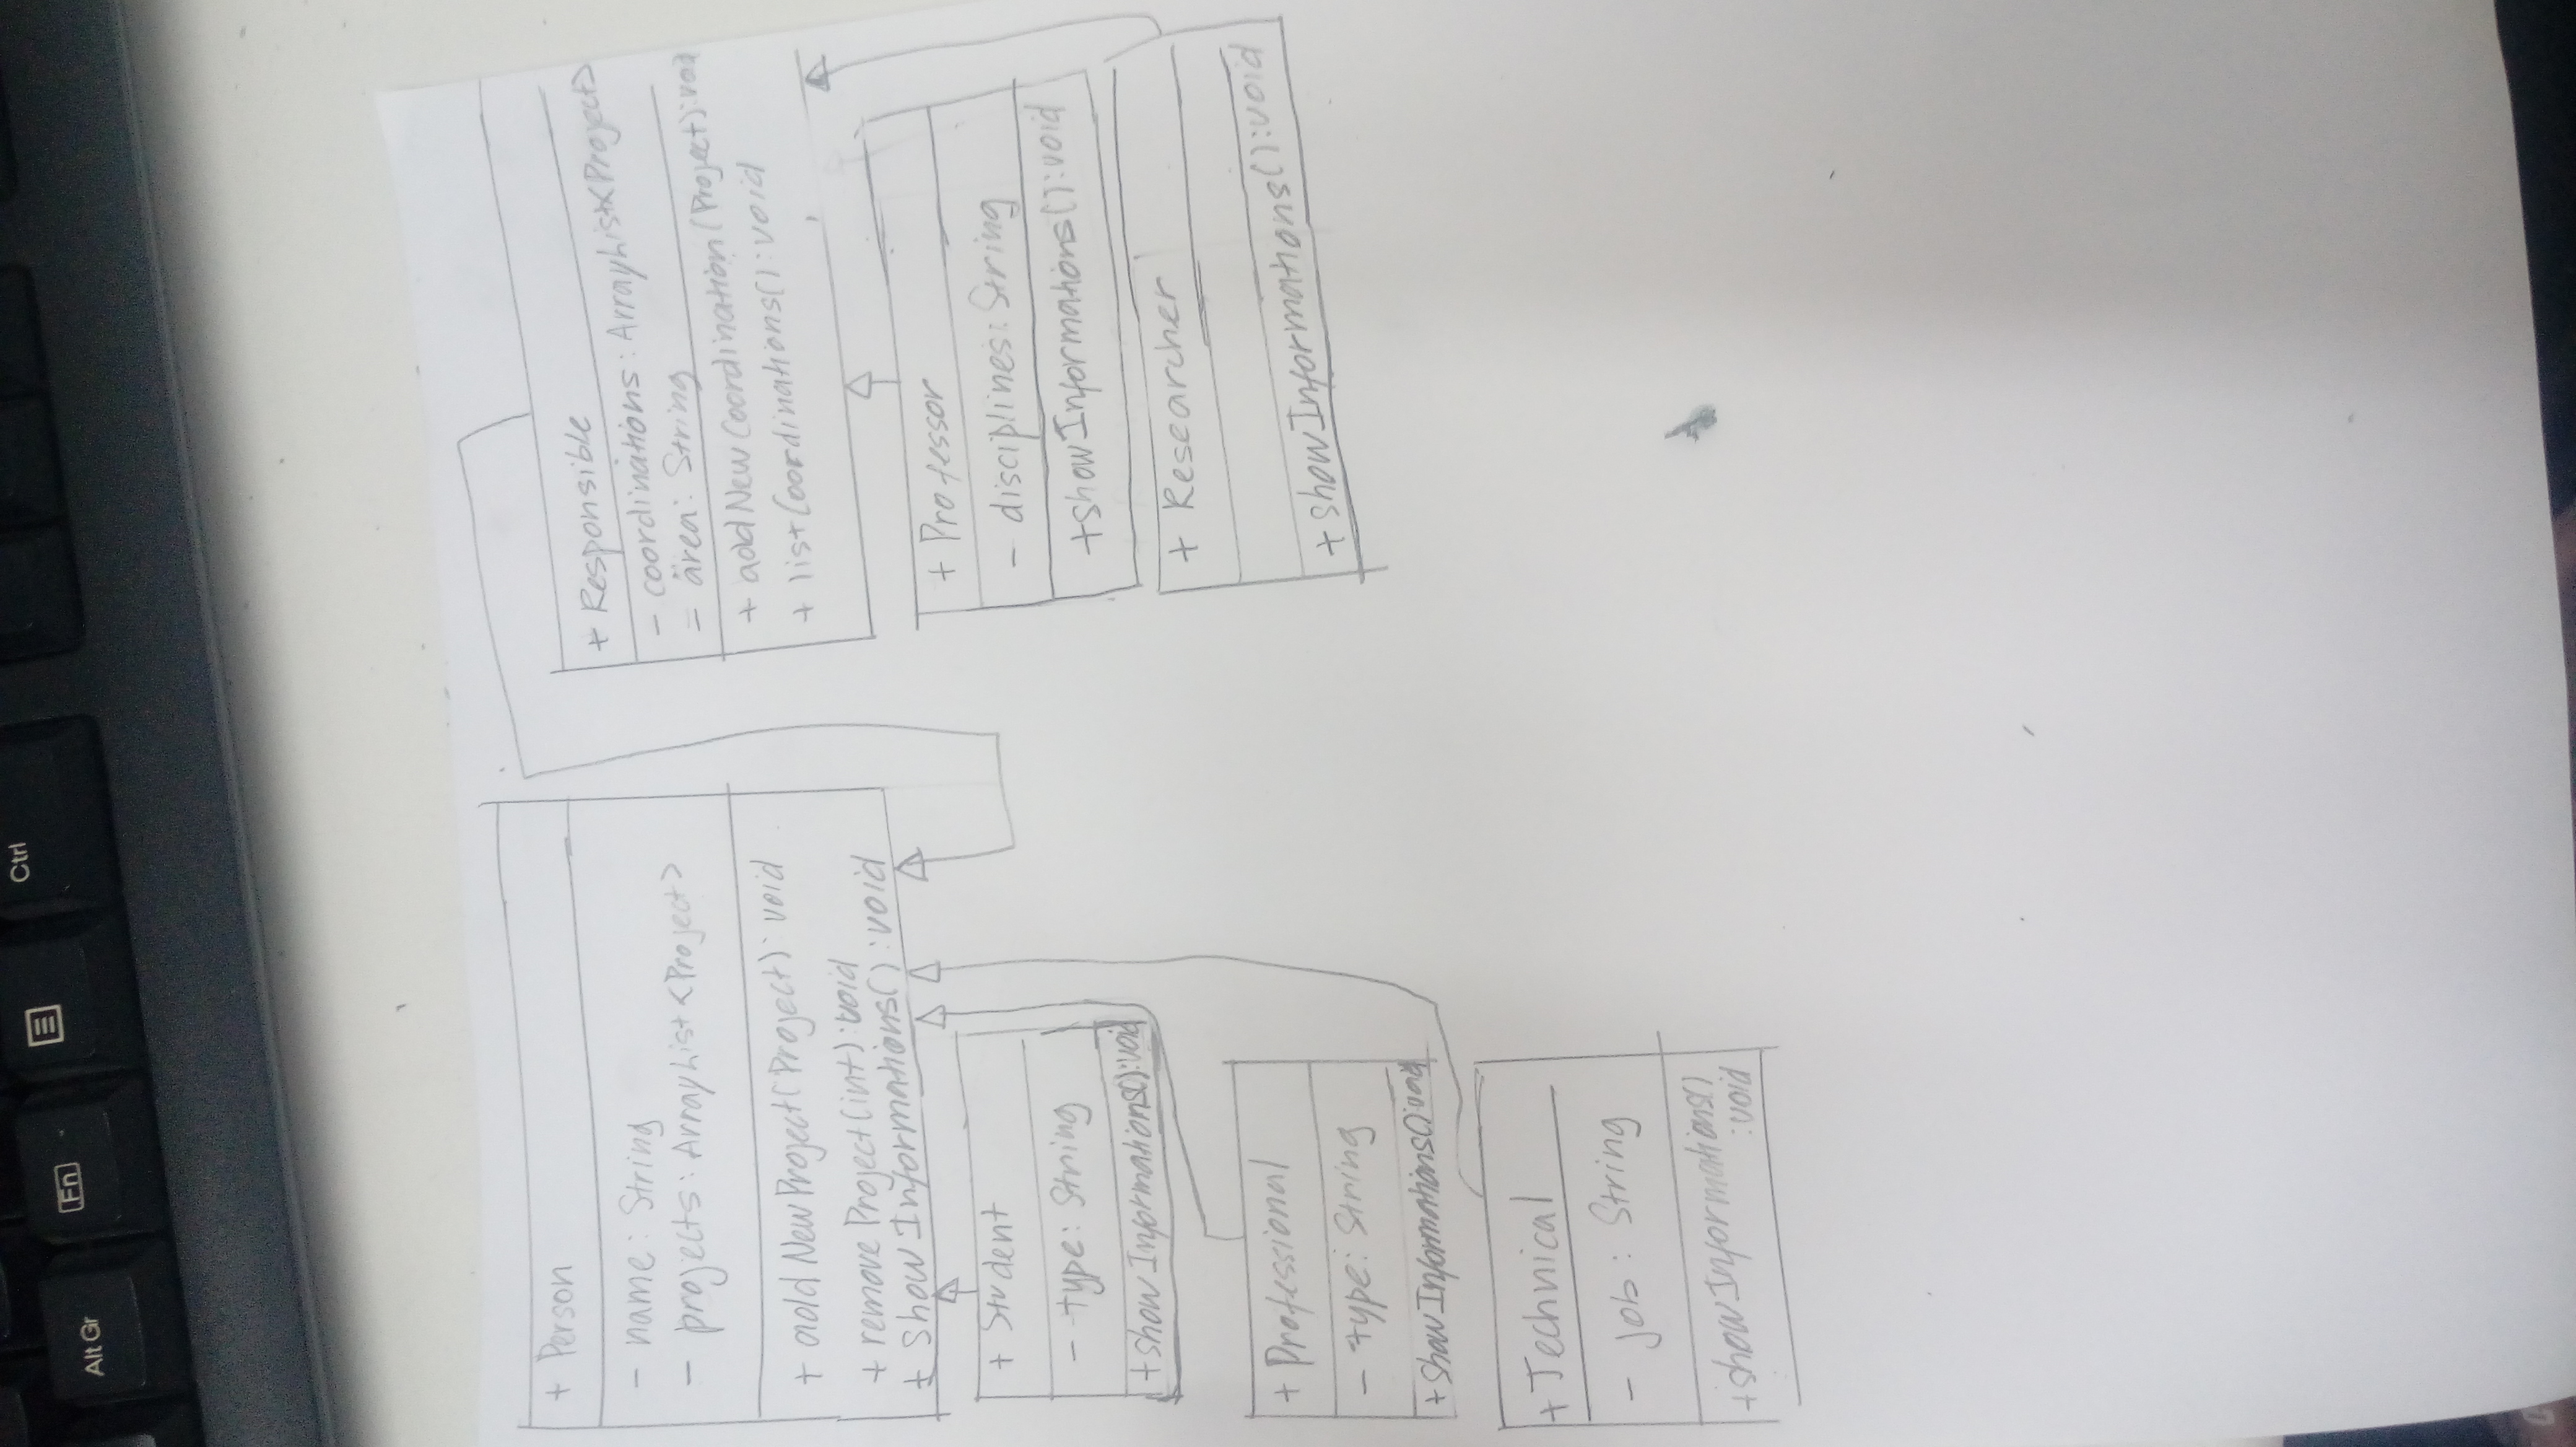 Alt Gr
Fn
Ctrl
+ Person
- name: String
- projects: ArrayList<Project>
+ addNewProject(Project): void
+ removeProject(int): void
+ showInformations(): void
+ Student
- type: String
+ showInformations(): void
+ Professional
- type: String
+ showInformations(): void
+ Technical
- job: String
+ showInformations()
: void
+ Responsible
- coordinations: ArrayList<Project>
= área: String
+ addNewCoordination(Project): void
+ listCoordinations(): void
+ Professor
- disciplines: String
+ showInformations(): void
+ Researcher
+ showInformations(): void